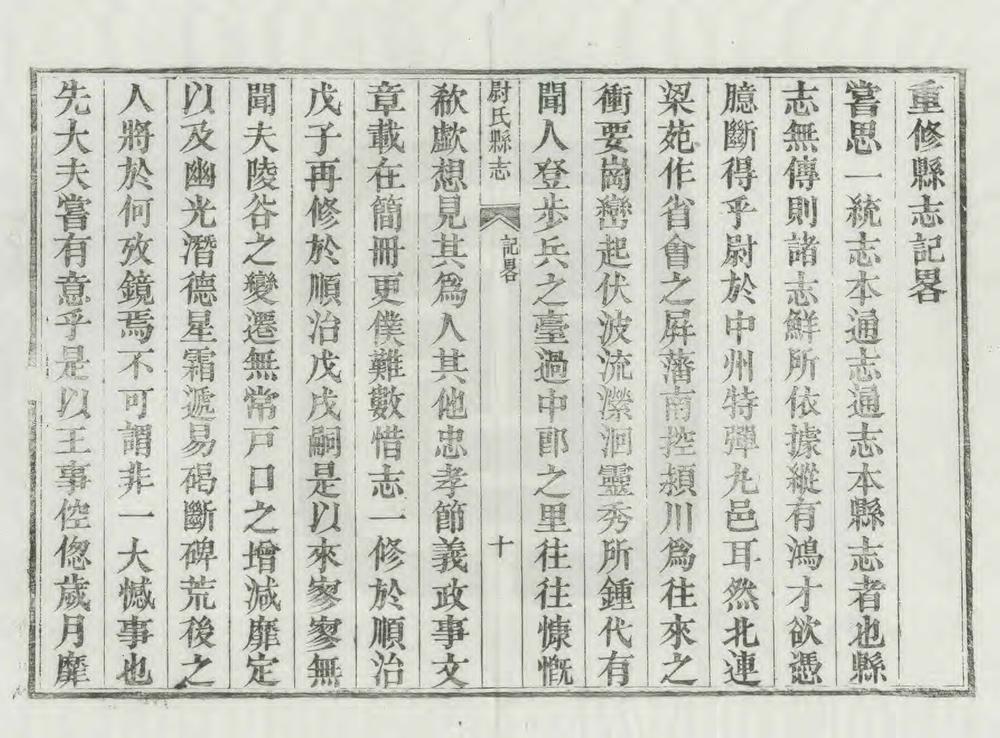 重修縣志記畧
嘗思一統志本通志通志本縣志者也縣
志無傳則諸志鮮所依據縱有鴻才欲憑
臆斷得乎尉於中州特彈丸邑耳然北連
梁苑作省會之屏藩南控潁川為往來之
衝要崗巒起伏波流瀠洄靈秀所鍾代有
聞人登步兵之臺過中郎之里往往慷慨
尉氏縣志
記畧
十
欷歔想見其為人其他忠孝節義政事文
章載在簡冊更僕難數惜志一修於順治
戊子再修於順治戊戌嗣是以來寥寥無
聞夫陵谷之變遷無常戶口之增減靡定
以及幽光潛德星霜遞易碣斷碑荒後之
人將於何攷鏡焉不可謂非一大憾事也
先大夫嘗有意乎是以王事倥傯歲月靡